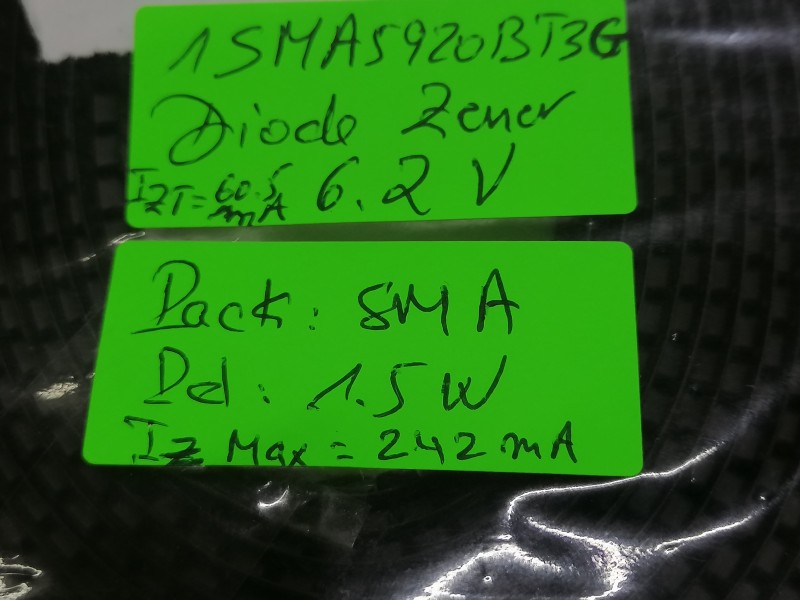 1SMA5920BT3G
Diode Zener
IZT=60.5 mA 6.2 V
Pack: SMA
Pd: 1.5W
Iz Max = 242 mA